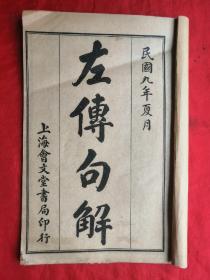 民國九年夏月
左傳句解
上海會文堂書局印行